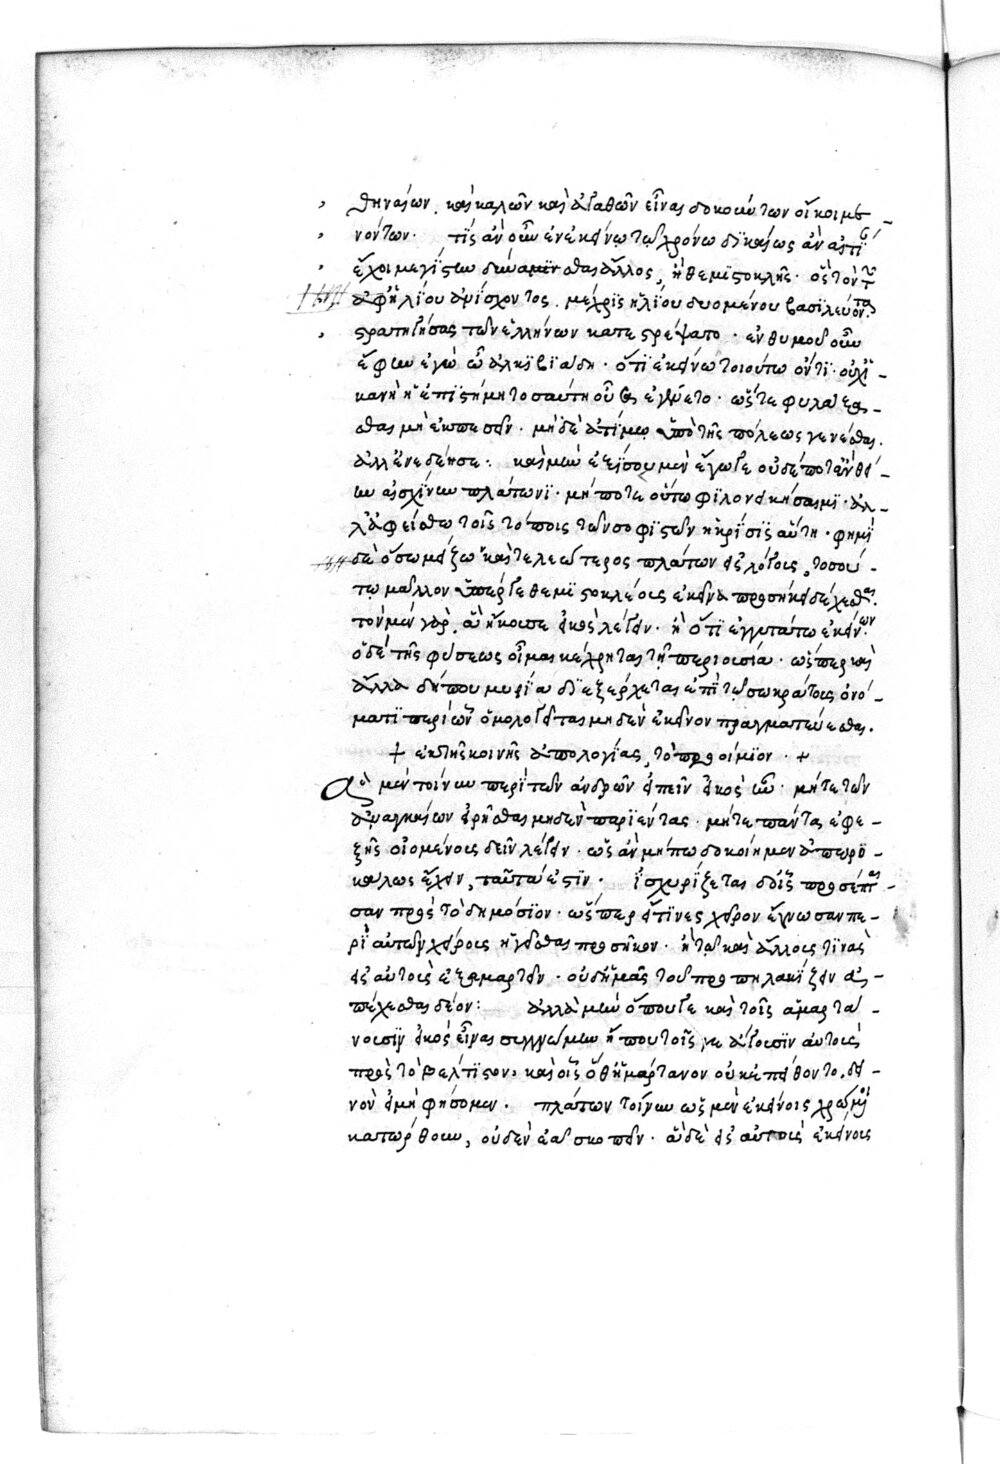 θηναίων. καὶ καλῶν καὶ ἀγαθῶν εἶναι δοκούντων οἴκοι με-
νόντων. τίς ἂν οὖν ἐν ἐκείνῳ τῷ χρόνῳ δικαίως ἂν αἰτί
ἔχοι μεγίστων δύνασθαι ἄλλος, ἢ θεμιστοκλῆς. ὃς τὸν
ἀφ' ἡλίου ἀνίσχοντος μέχρις ἡλίου δυομένου βασιλεύοντα
στρατηγήσας τῶν ἑλλήνων κατεστρέψατο. ἐνθυμοῦ οὖν
ἔφην ἐγὼ ὦ ἀλκιβιάδη. ὅτι ἐκείνῳ τοιούτῳ ὄντι. οὐχ ἱ-
κανὴ ἡ ἐπιστήμη τοσαύτη οὖσα ἐγένετο. ὥστε φυλάξα-
σθαι μὴ ἐκπεσεῖν. μηδὲ ἀτίμῳ ὑπὸ τῆς πόλεως γενέσθαι.
ἀλλ' ἐνεδέησε. καὶ μὴν ἐξ ἴσου μὲν ἔγωγε οὐδέποτ' ἂν θεί-
ην αἰσχίνην πλάτωνι. μήποτε οὕτω φιλονεικήσαιμι. ἀλ-
λ' ἀφείσθω τοῖς τόποις τῶν σοφιστῶν ἡ κρίσις αὕτη. φημὶ
δὲ ὅσῳ μείζω καὶ τελεώτερος πλάτων εἰς λόγους, τοσού-
τῳ μᾶλλον ὑπέρ γε θεμιστοκλέους ἐκεῖνα προσήκει δέχεσθαι.
τὸν μὲν γὰρ, ἃ ἤκουσε εἰκὸς λέγειν. ἢ ὅτι ἐγγυτάτω ἐκείνων.
ὁ δὲ τῆς φύσεως οἶμαι κέχρηται τῇ περιουσίᾳ. ὥσπερ καὶ
ἄλλα δήπου μυρία διεξέρχεται ἐπὶ τῷ σωκράτους ὀνό-
ματι περὶ ὧν ὁμολογεῖται μηδὲν ἐκεῖνον πραγματεύεσθαι.
+ ἐκ τῆς κοινῆς ἀπολογίας, τὸ προοίμιον. +
Ἃ μὲν τοίνυν περὶ τῶν ἀνδρῶν εἰπεῖν εἰκὸς ἦν. μήτε τῶν
ἀναγκαίων εἰρῆσθαι μηδὲν παριέντας. μήτε πάντα ἐφε-
ξῆς οἰομένους δεῖν λέγειν. ὡς ἂν μήπω δοκοίημεν ἀπειρο-
κάλως ἔχειν, ταῦτά ἐστιν. ἰσχυρίζεται δ' ὡς προσέπται-
σαν πρὸς τὸ δημόσιον. ὥσπερ εἴ τινες χεῖρον ἔγνωσαν πε-
ρὶ αὐτῶν χείρους ἡγεῖσθαι προσῆκον. ἢ τῷ καὶ ἄλλους τινὰς
εἰς αὐτοὺς ἐξαμαρτεῖν. οὐδ' ἡμᾶς τοῦ προπηλακίζειν ἀ-
πέχεσθαι δέον: ἀλλὰ μὴν ὅπου γε καὶ τοῖς ἁμαρτά-
νουσιν εἰκὸς εἶναι συγγνώμην ἤπου τοῖς γε ἄγουσιν αὐτοὺς
πρὸς τὸ βέλτιστον, καὶ οἷς ὅθ' ἡμάρτανον οὐκ ἐπείθοντο. δει-
νὸν εἰ μὴ φήσομεν. πλάτων τοίνυν ὡς μὲν ἐκείνοις χρώμενοι
κατώρθουν, οὐδὲν ἐᾷ σκοπεῖν. ἃ δὲ εἰς αὐτοὺς ἐκείνους